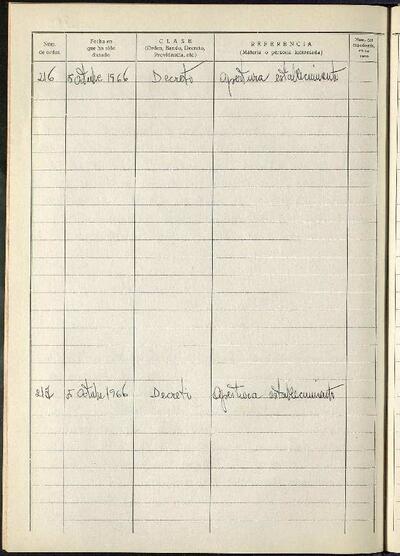 Núm. de orden
Fecha en que ha sido dictado
CLASE
(Orden, Bando, Decreto, Providencia, etc.)
REFERENCIA
(Materia o persona interesada)
Núm. del expediente, en su caso
216 5 Octubre 1966 Decreto apertura establecimiento
217 5 Octubre 1966 Decreto apertura establecimiento